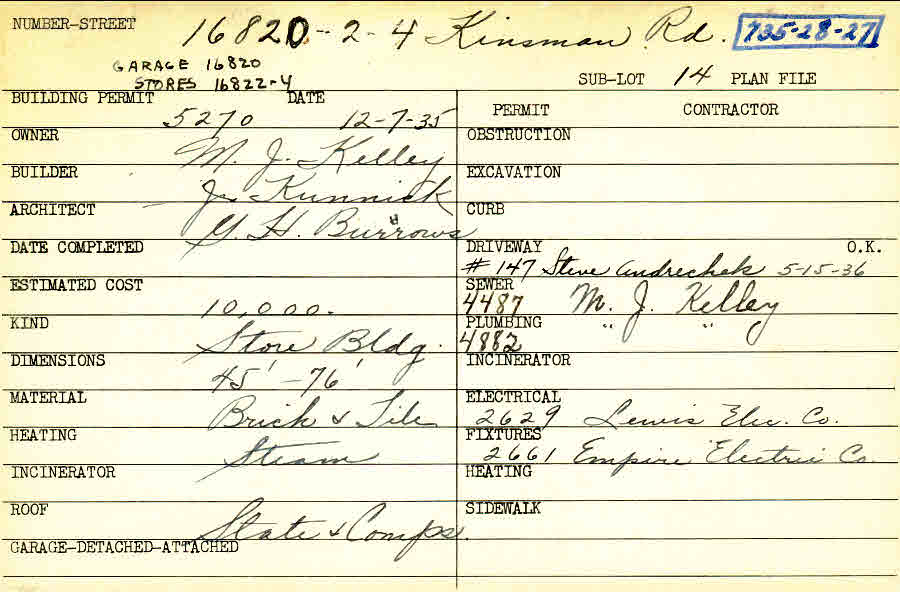 NUMBER-STREET 16820-2-4 Kinsman Rd. 735-28-27
GARAGE 16820
STORES 16822-4
SUB-LOT 14 PLAN FILE
BUILDING PERMIT DATE
5270 12-7-35
OWNER M. J. Kelley
BUILDER J. Kunnick
ARCHITECT G. H. Burrows
DATE COMPLETED
ESTIMATED COST 10,000.
KIND Store Bldg.
DIMENSIONS 45' - 76'
MATERIAL Brick & Tile
HEATING Steam
INCINERATOR
ROOF Slate & Comps.
GARAGE-DETACHED-ATTACHED
PERMIT CONTRACTOR
OBSTRUCTION
EXCAVATION
CURB
DRIVEWAY O.K.
# 147 Steve Andrechek 5-15-36
SEWER
4487 M. J. Kelley
PLUMBING " "
4882
INCINERATOR
ELECTRICAL
2629 Lewis Elec. Co.
FIXTURES
2661 Empire Electric Co.
HEATING
SIDEWALK